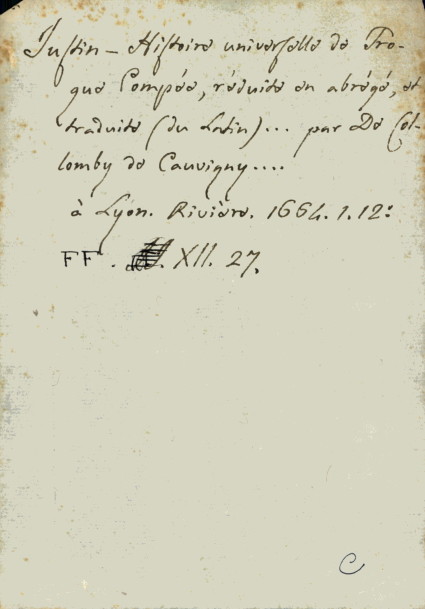 Justin — Histoire universelle de Tro-
gue Pompée, réduite en abrégé, et
traduite (du Latin)... par De Col-
lomby de Cauvigny....
à Lyon. Rivière. 1664. 1. 12:
FF. XII. 27.
C